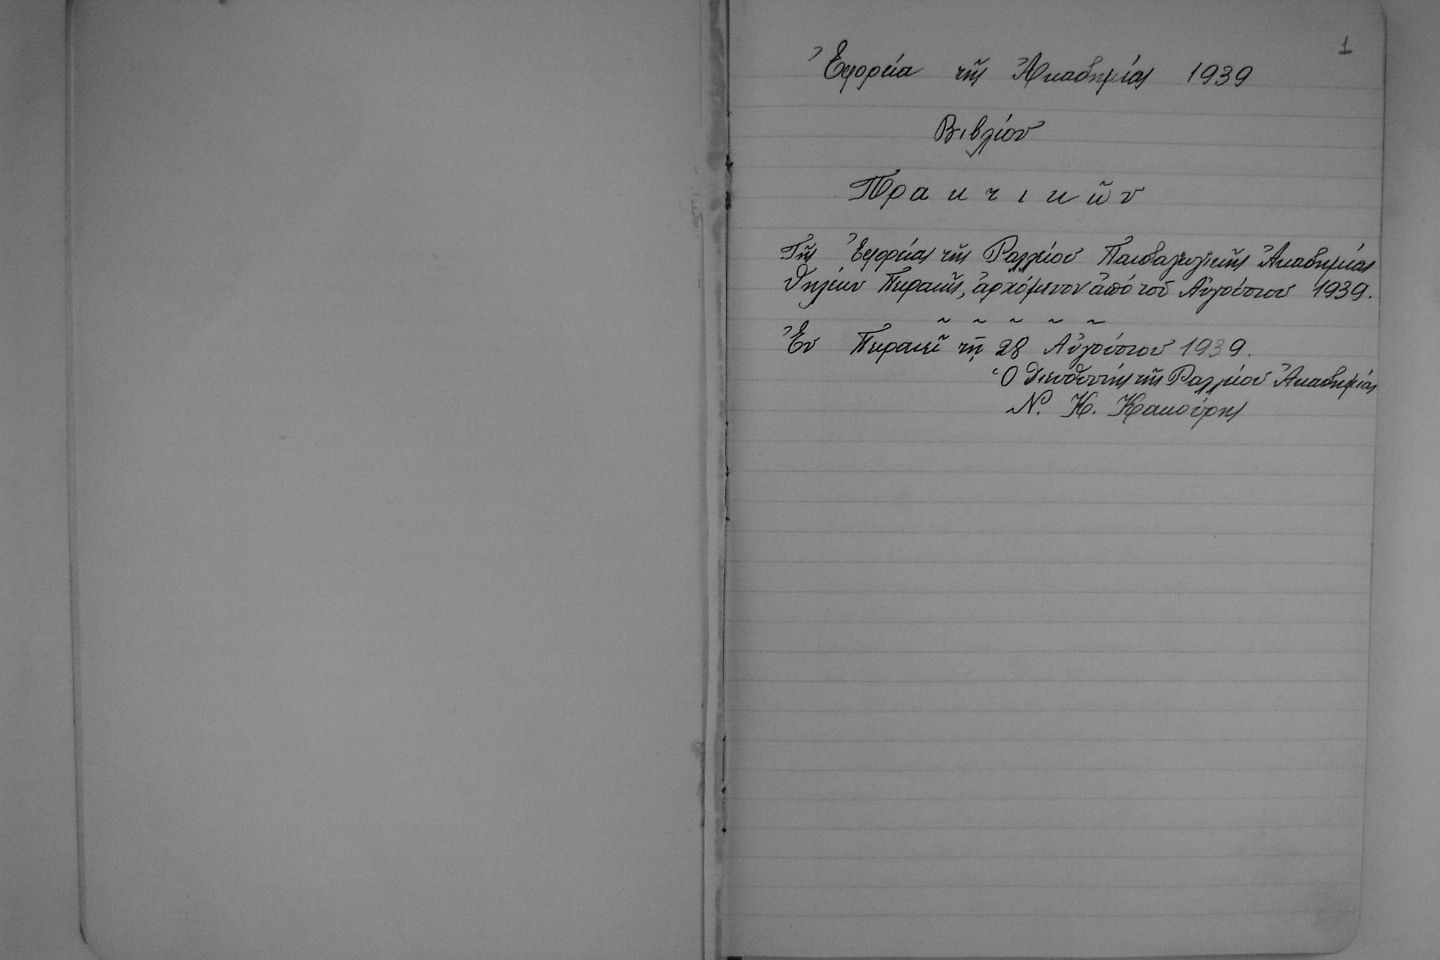 1
Ἐφορεία τῆς Ἀκαδημίας 1939
Βιβλίον
Πρακτικῶν
Τῆς Ἐφορείας τῆς Ραλλείου Παιδαγωγικῆς Ἀκαδημίας
Θηλέων Πειραιῶς, ἀρχόμενον ἀπό τοῦ Αὐγούστου 1939.
~ ~ ~ ~ ~
Ἐν Πειραιεῖ τῇ 28 Αὐγούστου 1939.
Ὁ Διευθυντής τῆς Ραλλείου Ἀκαδημίας
Ν. Κ. Κακούρης